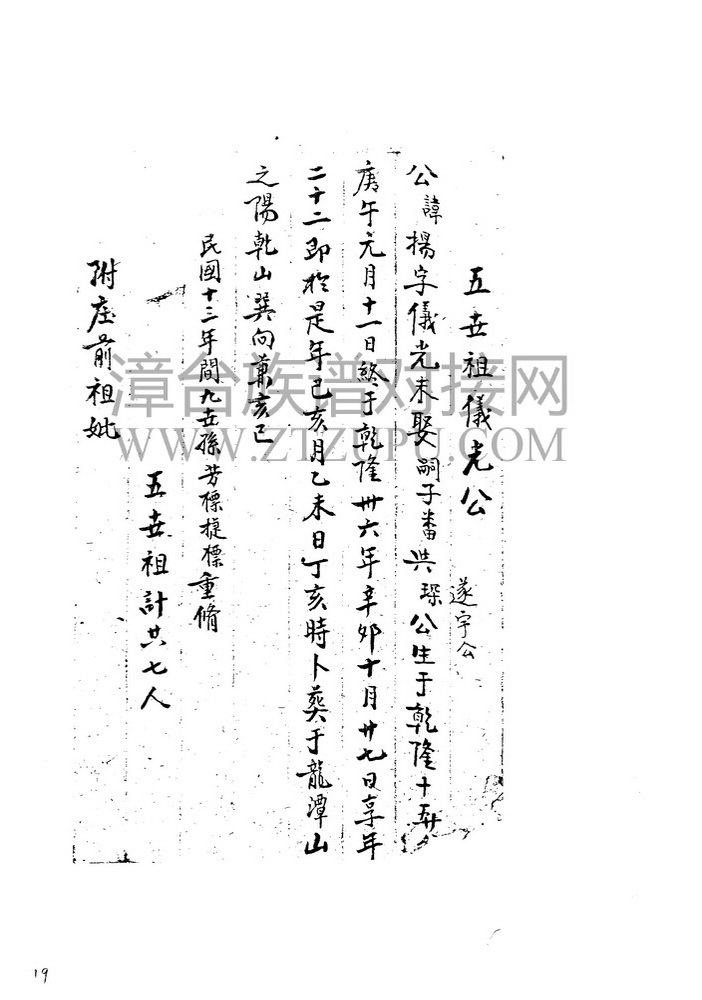 五世祖儀光公
遂宇公
公諱揚字儀光未娶嗣子番 琛公生于乾隆十五年
庚午元月十一日終于乾隆卅六年辛卯十月廿七日享年
二十二即於是年己亥月乙未日丁亥時卜葬于龍潭山
之陽乾山巽向兼亥巳
民國十三年間九世孫芳標提標重脩
五世祖計共七人
附庄前祖妣
漳台族谱对接网
WWW.ZTZUPU.COM
19